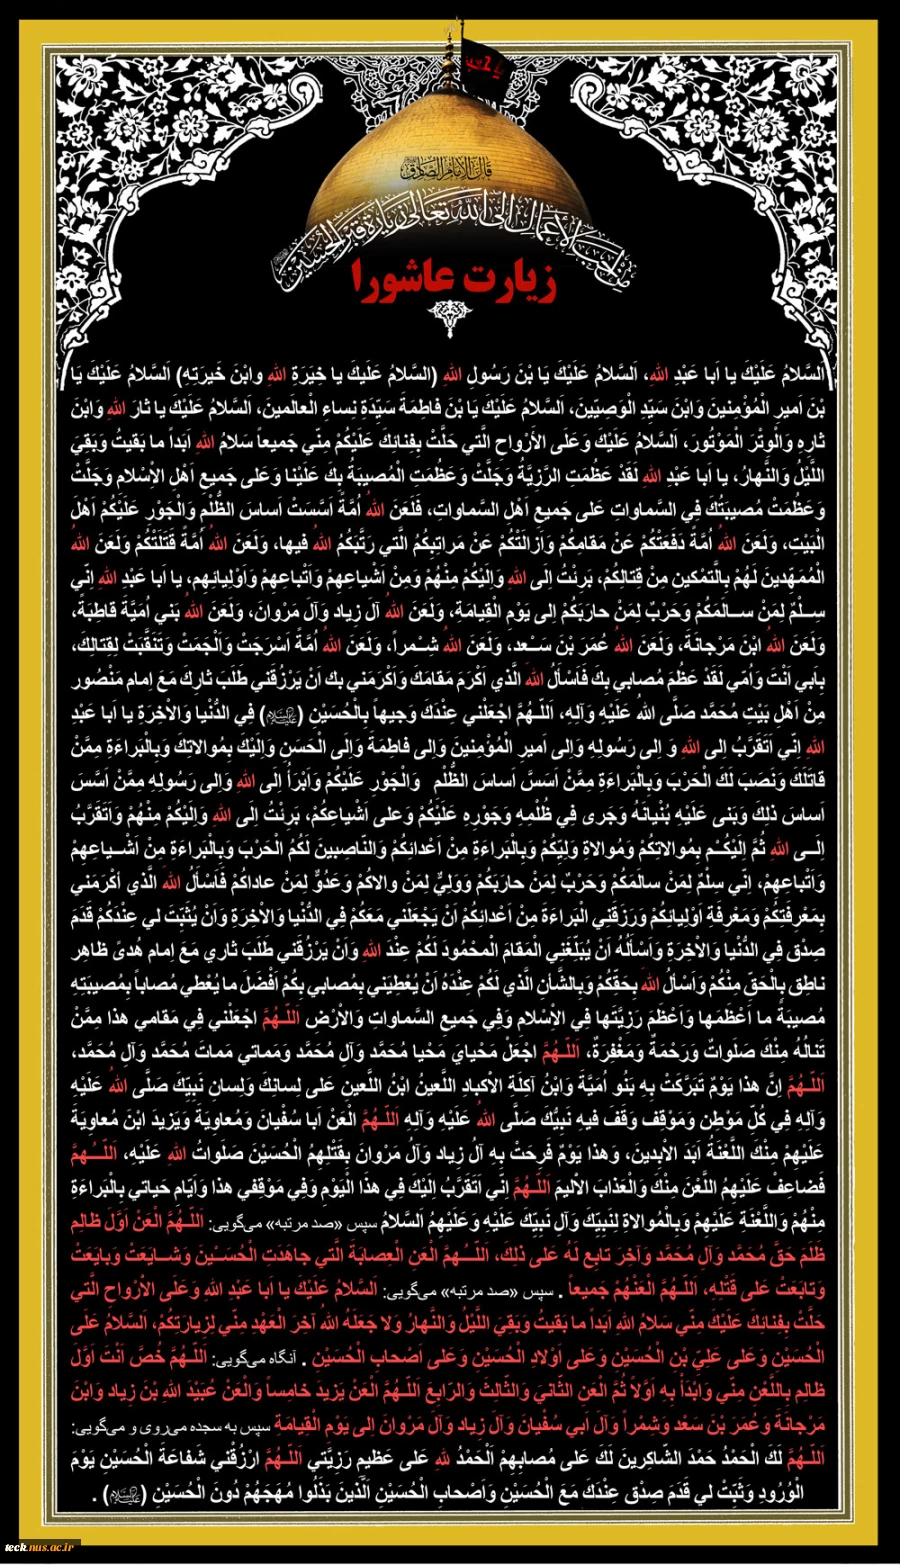 یا حسین
قالَ الإمامُ الصّادق
مِن أحبِّ الأعمالِ إلی اللهِ تعالی زیارةُ قبرِ الحسین
زیارت عاشورا
اَلسَّلامُ عَلَيْكَ يا اَبا عَبْدِ اللهِ، اَلسَّلامُ عَلَيْكَ يَا بْنَ رَسُولِ اللهِ (السَّلامُ عَلَيكَ يا خِيَرَةِ اللهِ وابْنَ خَيرَتِه) اَلسَّلامُ عَلَيْكَ يَا
بْنَ اَميرِ الْمُؤْمِنينَ وَابْنَ سَيِّدِ الْوَصِيّينَ، اَلسَّلامُ عَلَيْكَ يَا بْنَ فاطِمَةَ سَيِّدَةِ نِساءِ الْعالَمينَ، اَلسَّلامُ عَلَيْكَ يا ثارَ اللهِ وَابْنَ
ثارِهِ وَالْوِتْرَ الْمَوْتُورَ، اَلسَّلامُ عَلَيْكَ وَعَلَى الأَرواحِ الَّتي حَلَّتْ بِفِنائِكَ عَلَيْكُمْ مِنّي جَميعاً سَلامُ اللهِ اَبَداً ما بَقيتُ وَبَقِيَ
اللَّيْلُ وَالنَّهارُ، يا اَبا عَبْدِ اللهِ لَقَدْ عَظُمَتِ الرَّزِيَّةُ وَجَلَّتْ وَعَظُمَتِ الْمُصيبَةُ بِكَ عَلَيْنا وَعَلى جَميعِ اَهْلِ الاِْسْلامِ وَجَلَّتْ
وَعَظُمَتْ مُصيبَتُكَ فِي السَّماواتِ عَلى جَميعِ اَهْلِ السَّماواتِ، فَلَعَنَ اللهُ اُمَّةً اَسَّسَتْ اَساسَ الظُّلْمِ وَالْجَوْرِ عَلَيْكُمْ اَهْلَ
الْبَيْتِ، وَلَعَنَ اللهُ اُمَّةً دَفَعَتْكُمْ عَنْ مَقامِكُمْ وَاَزالَتْكُمْ عَنْ مَراتِبِكُمُ الَّتي رَتَّبَكُمُ اللهُ فيها، وَلَعَنَ اللهُ اُمَّةً قَتَلَتْكُمْ وَلَعَنَ اللهُ
الْمُمَهِّدينَ لَهُمْ بِالَّتمْكينِ مِنْ قِتالِكُمْ، بَرِئْتُ اِلَى اللهِ وَاِلَيْكُمْ مِنْهُمْ وَمِنْ اَشْياعِهِمْ وَاَتْباعِهِمْ وَاَوْلِيائِهِم، يا اَبا عَبْدِ اللهِ اِنّي
سِــلْمٌ لِمَنْ ســالَمَكُمْ وَحَرْبٌ لِمَنْ حارَبَكُمْ اِلى يَوْمِ الْقِيامَةِ، وَلَعَنَ اللهُ آلَ زِيادٍ وَآلَ مَرْوانَ، وَلَعَنَ اللهُ بَني اُمَيَّةَ قاطِبَةً،
وَلَعَنَ اللهُ ابْنَ مَرْجانَةَ، وَلَعَنَ اللهُ عُمَرَ بْنَ سَــعْدٍ، وَلَعَنَ اللهُ شِــمْراً، وَلَعَنَ اللهُ اُمَّةً اَسْرَجَتْ وَاَلْجَمَتْ وَتَنَقَّبَتْ لِقِتالِكَ،
بِاَبي اَنْتَ وَاُمّي لَقَدْ عَظُمَ مُصابي بِكَ فَاَسْأَلُ اللهَ الَّذي اَكْرَمَ مَقامَكَ وَاَكْرَمَني بِكَ اَنْ يَرْزُقَني طَلَبَ ثارِكَ مَعَ اِمامٍ مَنْصُورٍ
مِنْ اَهْلِ بَيْتِ مُحَمَّدٍ صَلَّى اللهُ عَلَيْهِ وَآلِهِ، اَللّــهُمَّ اجْعَلْني عِنْدَكَ وَجيهاً بِالْحُسَيْنِ (علیه‌السلام) فِي الدُّنْيا وَالاْخِرَةِ يا اَبا عَبْدِ
اللهِ اِنّي اَتَقَرَّبُ اِلى اللهِ وَ اِلى رَسُولِهِ وَاِلى اَميرِ الْمُؤْمِنينَ وَاِلى فاطِمَةَ وَاِلَى الْحَسَنِ وَاِلَيْكَ بِمُوالاتِكَ وَبِالْبَراءَةِ مِمَّنْ
قاتَلَكَ وَنَصَبَ لَكَ الْحَرْبَ وَبِالْبَراءَةِ مِمَّنْ اَسَسَّ اَساسَ الظُّلْمِ وَالْجَوْرِ عَلَيْكُمْ وَاَبْرَأُ اِلَى اللهِ وَاِلى رَسُولِهِ مِمَّنْ اَسَّسَ
اَساسَ ذلِكَ وَبَنى عَلَيْهِ بُنْيانَهُ وَجَرى فِي ظُلْمِهِ وَجَوْرِهِ عَلَيْكُمْ وَعلى اَشْياعِكُمْ، بَرِئْتُ اِلَى اللهِ وَاِلَيْكُمْ مِنْهُمْ وَاَتَقَرَّبُ
اِلَــى اللهِ ثُمَّ اِلَيْكُــمْ بِمُوالاتِكُمْ وَمُوالاةِ وَلِيِّكُمْ وَبِالْبَراءَةِ مِنْ اَعْدائِكُمْ وَالنّاصِبينَ لَكُمُ الْحَرْبَ وَبِالْبَراءَةِ مِنْ اَشْــياعِهِمْ
وَاَتْباعِهِمْ، اِنّي سِلْمٌ لِمَنْ سالَمَكُمْ وَحَرْبٌ لِمَنْ حارَبَكُمْ وَوَلِيٌّ لِمَنْ والاكُمْ وَعَدُوٌّ لِمَنْ عاداكُمْ فَاَسْأَلُ اللهَ الَّذي أكْرَمَني
بِمَعْرِفَتِكُمْ وَمَعْرِفَةِ اَوْلِيائِكُمْ وَرَزَقَنِي الْبَراءَةَ مِنْ اَعْدائِكُمْ اَنْ يَجْعَلَني مَعَكُمْ فِي الدُّنْيا وَالاْخِرَةِ وَاَنْ يُثَبِّتَ لي عِنْدَكُمْ قَدَمَ
صِدْقٍ فِي الدُّنْيا وَالاْخِرَةِ وَاَسْأَلُهُ اَنْ يُبَلِّغَنِي الْمَقامَ الْمَحْمُودَ لَكُمْ عِنْدَ اللهِ وَاَنْ يَرْزُقَني طَلَبَ ثاري مَعَ اِمامٍ هُدىً ظاهِرٍ
ناطِقٍ بِالْحَقِّ مِنْكُمْ وَاَسْألُ اللهَ بِحَقِّكُمْ وَبِالشَّأنِ الَّذي لَكُمْ عِنْدَهُ اَنْ يُعْطِيَني بِمُصابي بِكُمْ اَفْضَلَ ما يُعْطي مُصاباً بِمُصيبَتِهِ
مُصيبَةً ما اَعْظَمَها وَاَعْظَمَ رَزِيَّتَها فِي الاِْسْلامِ وَفِي جَميعِ السَّماواتِ وَالاَْرْضِ اَللّــهُمَّ اجْعَلْني فِي مَقامي هذا مِمَّنْ
تَنالُهُ مِنْكَ صَلَواتٌ وَرَحْمَةٌ وَمَغْفِرَةٌ، اَللّــهُمَّ اجْعَلْ مَحْيايَ مَحْيا مُحَمَّدٍ وَآلِ مُحَمَّدٍ وَمَماتي مَماتَ مُحَمَّدٍ وَآلِ مُحَمَّدٍ،
اَللّــهُمَّ اِنَّ هذا يَوْمٌ تَبَرَّكَتْ بِهِ بَنُو اُمَيَّةَ وَابْنُ آكِلَةِ الاكبادِ اللَّعينُ ابْنُ اللَّعينِ عَلى لِسانِكَ وَلِسانِ نَبِيِّكَ صَلَّى اللهُ عَلَيْهِ
وَآلِهِ فِي كُلِّ مَوْطِنٍ وَمَوْقِفٍ وَقَفَ فيهِ نَبِيُّكَ صَلَّى اللهُ عَلَيْهِ وَآلِهِ اَللّــهُمَّ الْعَنْ اَبا سُفْيانَ وَمُعاوِيَةَ وَيَزيدَ ابْنَ مُعاوِيَةَ
عَلَيْهِمْ مِنْكَ اللَّعْنَةُ اَبَدَ الاْبِدينَ، وَهذا يَوْمٌ فَرِحَتْ بِهِ آلُ زِيادٍ وَآلُ مَرْوانَ بِقَتْلِهِمُ الْحُسَيْنَ صَلَواتُ اللهِ عَلَيْهِ، اَللّــهُمَّ
فَضاعِفْ عَلَيْهِمُ اللَّعْنَ مِنْكَ وَالْعَذابَ الاَليمَ اَللّــهُمَّ اِنّي اَتَقَرَّبُ اِلَيْكَ فِي هذَا الْيَوْمِ وَفِي مَوْقِفي هذا وَاَيّامِ حَياتي بِالْبَراءَةِ
مِنْهُمْ وَاللَّعْنَةِ عَلَيْهِمْ وَبِالْمُوالاةِ لِنَبِيِّكَ وَآلِ نَبِيِّكَ عَلَيْهِ وَعَلَيْهِمُ اَلسَّلامُ سپس «صد مرتبه» می‌گویی: اَللّــهُمَّ الْعَنْ اَوَّلَ ظالِمٍ
ظَلَمَ حَقَّ مُحَمَّدٍ وَآلِ مُحَمَّدٍ وَآخِرَ تابِعٍ لَهُ عَلى ذلِكَ، اَللّــهُمَّ الْعَنِ الْعِصابَةَ الَّتي جاهَدَتِ الْحُسَــيْنَ وَشــايَعَتْ وَبايَعَتْ
وَتابَعَتْ عَلى قَتْلِهِ، اَللّــهُمَّ الْعَنْهُمْ جَميعاً . سپس «صد مرتبه» می‌گویی: اَلسَّلامُ عَلَيْكَ يا اَبا عَبْدِ اللهِ وَعَلَى الاَْرْواحِ الَّتي
حَلَّتْ بِفِنائِكَ عَلَيْكَ مِنّي سَلامُ اللهِ اَبَداً ما بَقيتُ وَبَقِيَ اللَّيْلُ وَالنَّهارُ وَلا جَعَلَهُ اللهُ آخِرَ الْعَهْدِ مِنّي لِزِيارَتِكُمْ، اَلسَّلامُ عَلَى
الْحُسَيْنِ وَعَلى عَلِيِّ بْنِ الْحُسَيْنِ وَعَلى اَوْلادِ الْحُسَيْنِ وَعَلى اَصْحابِ الْحُسَيْنِ . آنگاه می‌گویی: اَللّــهُمَّ خُصَّ اَنْتَ اَوَّلَ
ظالِمٍ بِاللَّعْنِ مِنّي وَابْدَأْ بِهِ اَوَّلاً ثُمَّ الْعَنِ الثّانيَ وَالثّالِثَ وَالرّابِعَ اَللّــهُمَّ الْعَنْ يَزيدَ خامِساً وَالْعَنْ عُبَيْدَ اللهِ بْنَ زِيادٍ وَابْنَ
مَرْجانَةَ وَعُمَرَ بْنَ سَعْدٍ وَشِمْراً وَآلَ اَبي سُفْيانَ وَآلَ زِيادٍ وَآلَ مَرْوانَ اِلى يَوْمِ الْقِيامَةِ سپس به سجده می‌روی و می‌گویی:
اَللّــهُمَّ لَكَ الْحَمْدُ حَمْدَ الشّاكِرينَ لَكَ عَلى مُصابِهِمْ اَلْحَمْدُ للهِ عَلى عَظيمِ رَزِيَّتي اَللّــهُمَّ ارْزُقْني شَفاعَةَ الْحُسَيْنِ يَوْمَ
الْوُرُودِ وَثَبِّتْ لي قَدَمَ صِدْقٍ عِنْدَكَ مَعَ الْحُسَيْنِ وَاَصْحابِ الْحُسَيْنِ اَلَّذينَ بَذَلُوا مُهَجَهُمْ دُونَ الْحُسَيْنِ (علیه‌السلام) .
teck.nus.ac.ir